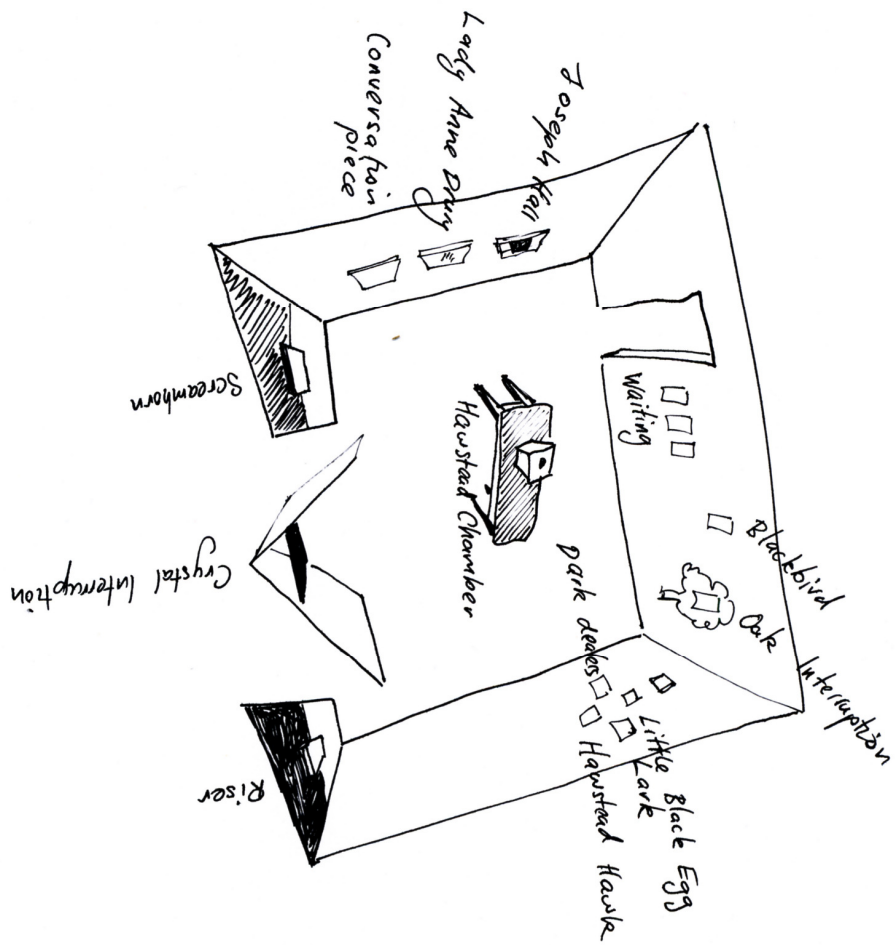 Joseph Hall
Lady Anne Drury
Conversation
piece
Screamhorn
Crystal Interruption
Riser
Hawstead Chamber
Waiting
Blackbird
Oak
Interruption
Little Black Egg
Lark
Hawstead Hawk
park dealers